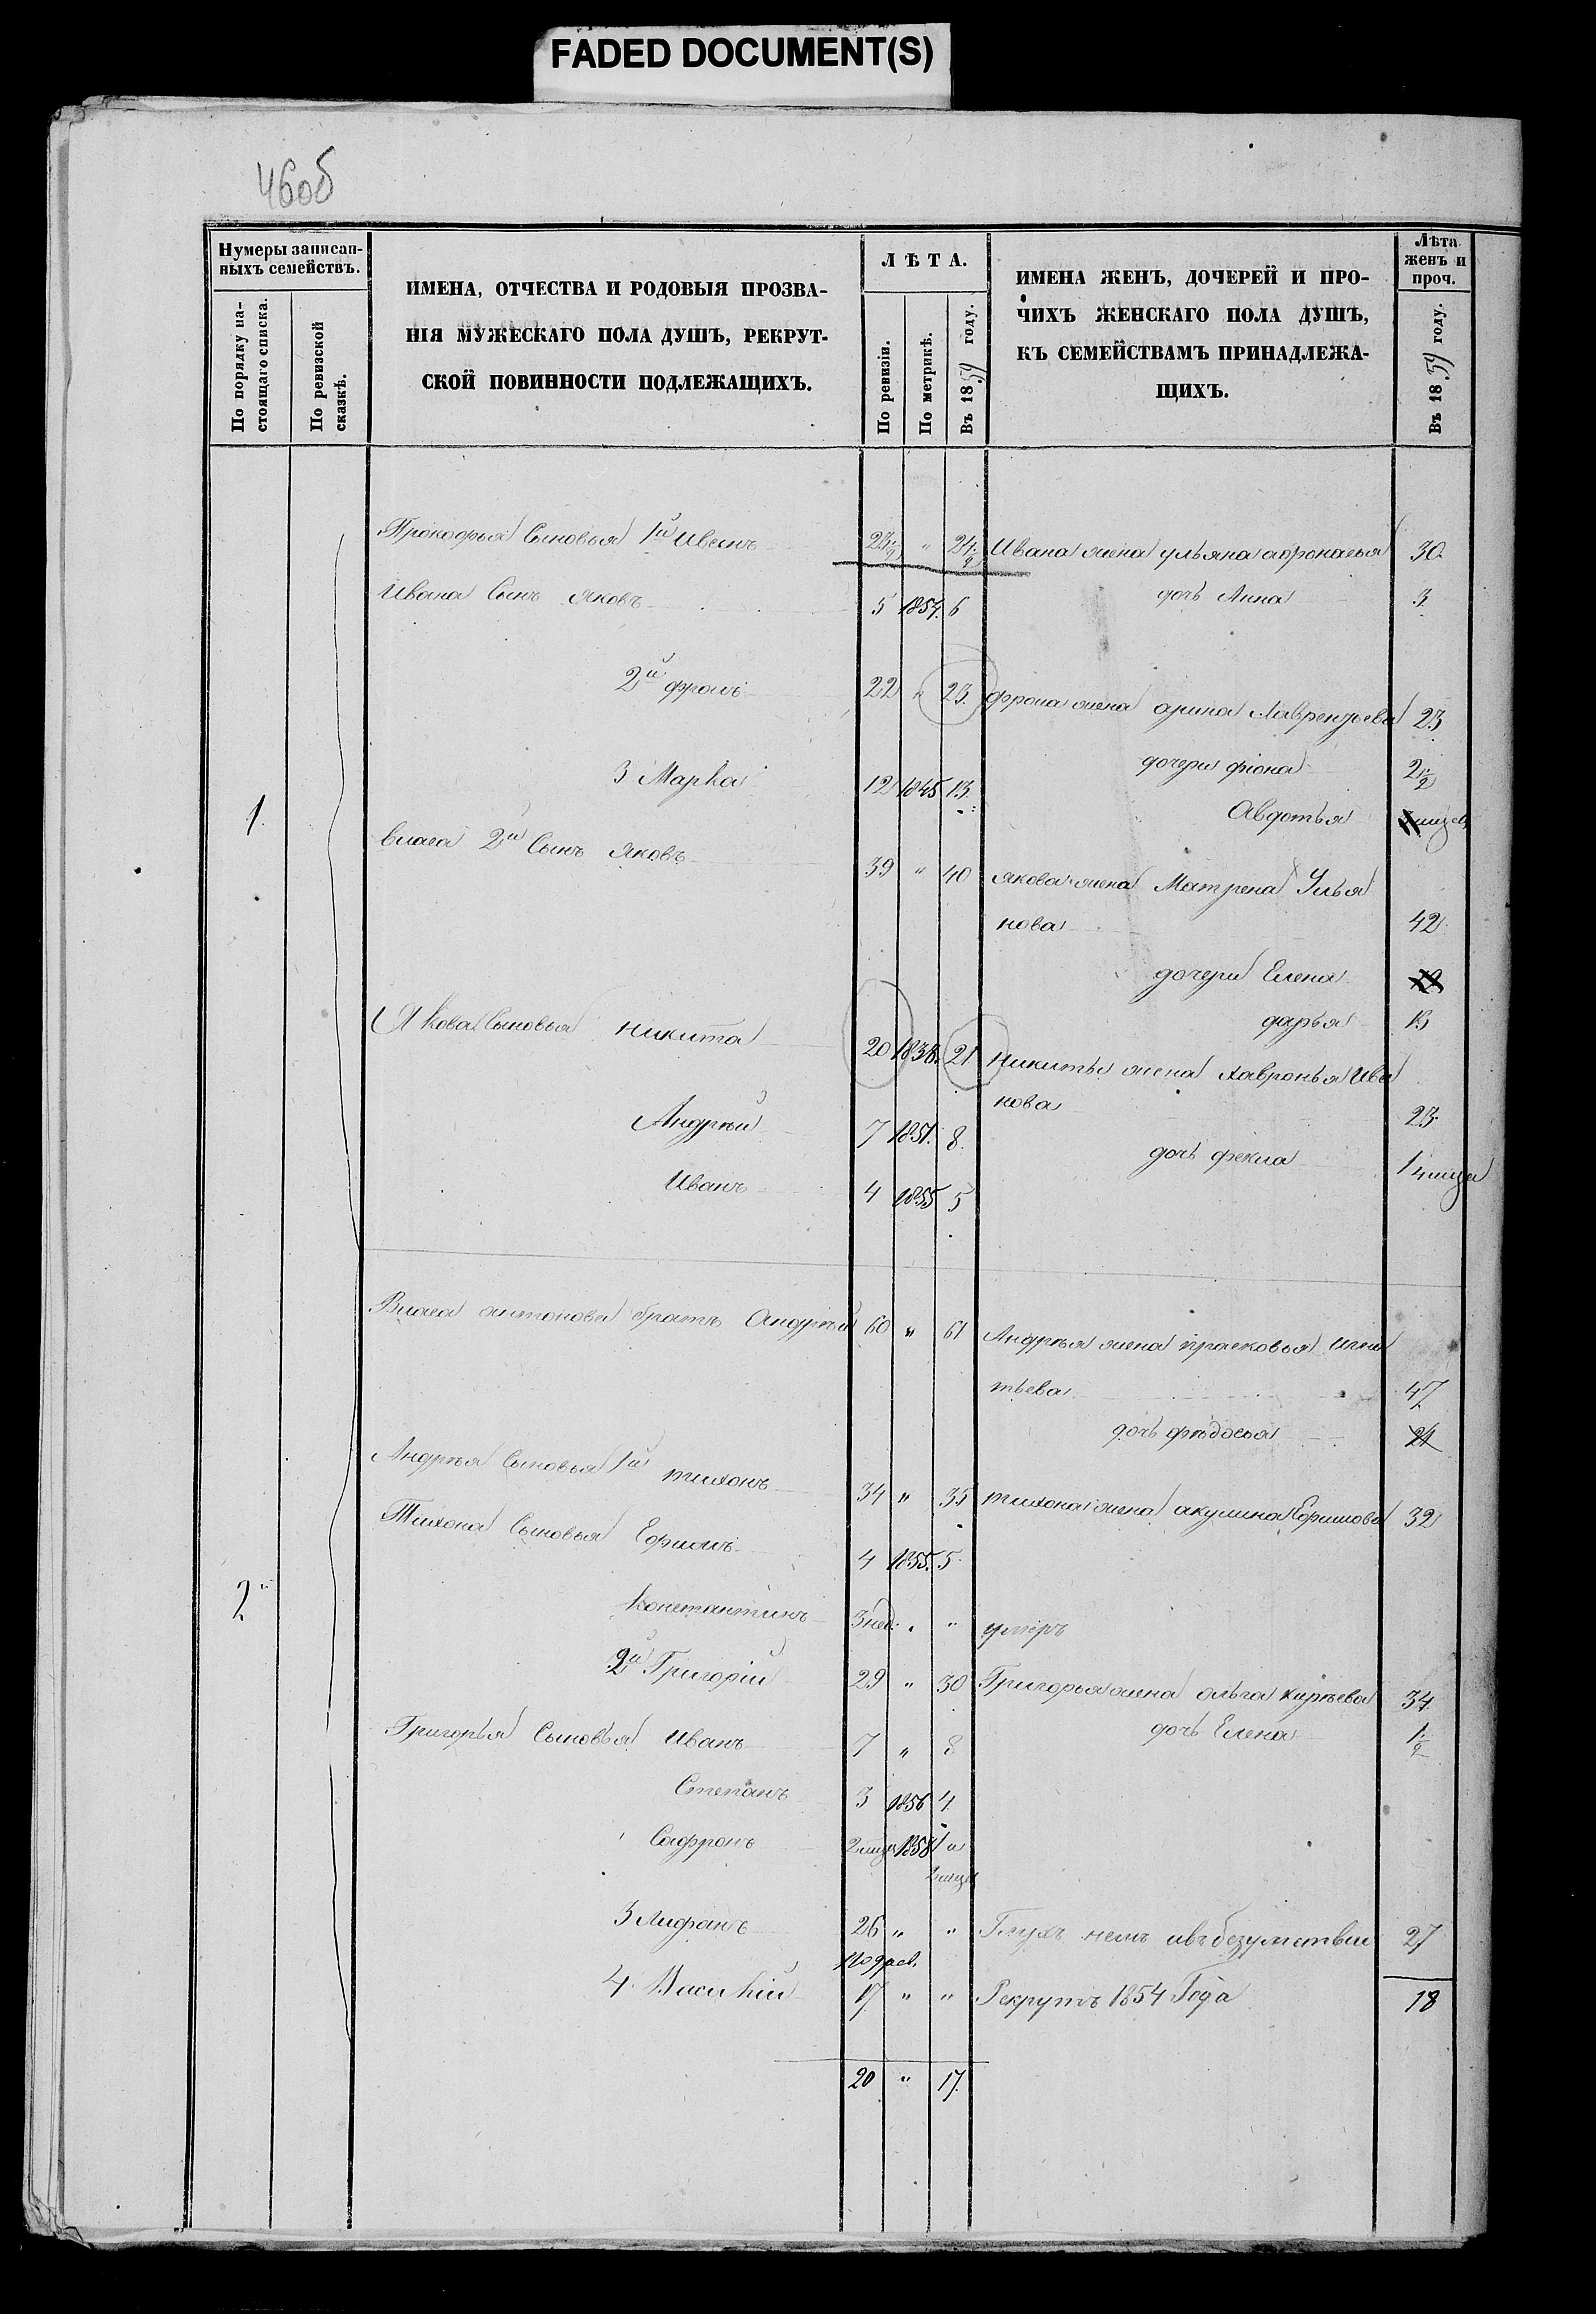 FADED DOCUMENT(S)
460б
Нумеры записан-
ныхъ семействъ.
По порядку на-
стоящаго списка.
По ревизской
сказкѣ.
ИМЕНА, ОТЧЕСТВА И РОДОВЫЯ ПРОЗВА-
НІЯ МУЖЕСКАГО ПОЛА ДУШЪ, РЕКРУТ-
СКОЙ ПОВИННОСТИ ПОДЛЕЖАЩИХЪ.
ЛѢТА.
По ревизіи.
По метрикѣ.
Въ 1859 году.
ИМЕНА ЖЕНЪ, ДОЧЕРЕЙ И ПРО-
ЧИХЪ ЖЕНСКАГО ПОЛА ДУШЪ,
КЪ СЕМЕЙСТВАМЪ ПРИНАДЛЕЖА-
ЩИХЪ.
Лѣта
женъ и
проч.
Въ 1859 году.
Прокофья Сыновья 1й Иванъ 23½ " 24½ Ивана жена ульяна афронасья 30
Ивана Сынъ яковъ 5 1854. 6 дочь Анна 3
2й фролъ 22 " 23. фрола жена арина Лаврентьева 23
дочери фіона 2½
3 Марка 12 1845 13.
Авдотья мцев
1. власа 2й Сынъ яковъ 39 " 40 якова жена Матрена Улья
нова 42
дочери Елена
дарья 13
Якова Сыновья никита 20 1838. 21 никиты жена Хавронья Ива
нова 23
Андрѣй 7 1851. 8.
дочь фекла 1 4 мца
Иванъ 4 1855 5
Власа антонова братъ Андрѣй 60 " 61 Андрѣя жена прасковья игна
тьева 47
дочь фѣдосья 21
Андрѣя Сыновья 1й тихонъ 34 " 35 тихона жена акулина Ефимова 32
Тихона Сыновья Ефимъ 4 1855. 5.
2й Константинъ 3 нед. " " умеръ
2й Григорій 29 " 30 Григорья жена ольга кирѣева 34
дочь Елена 1½
Григорья Сыновья Иванъ 7 " 8
Степанъ 3 1856 4.
Сафронъ 2 мца 1858 1 и
2 мца
3 Лифанъ 26 " " Глухъ немъ и въ безумствіи 27
по 9 рев.
4. Василій 17 " " Рекрутъ 1854 Года 18
20 " 17.